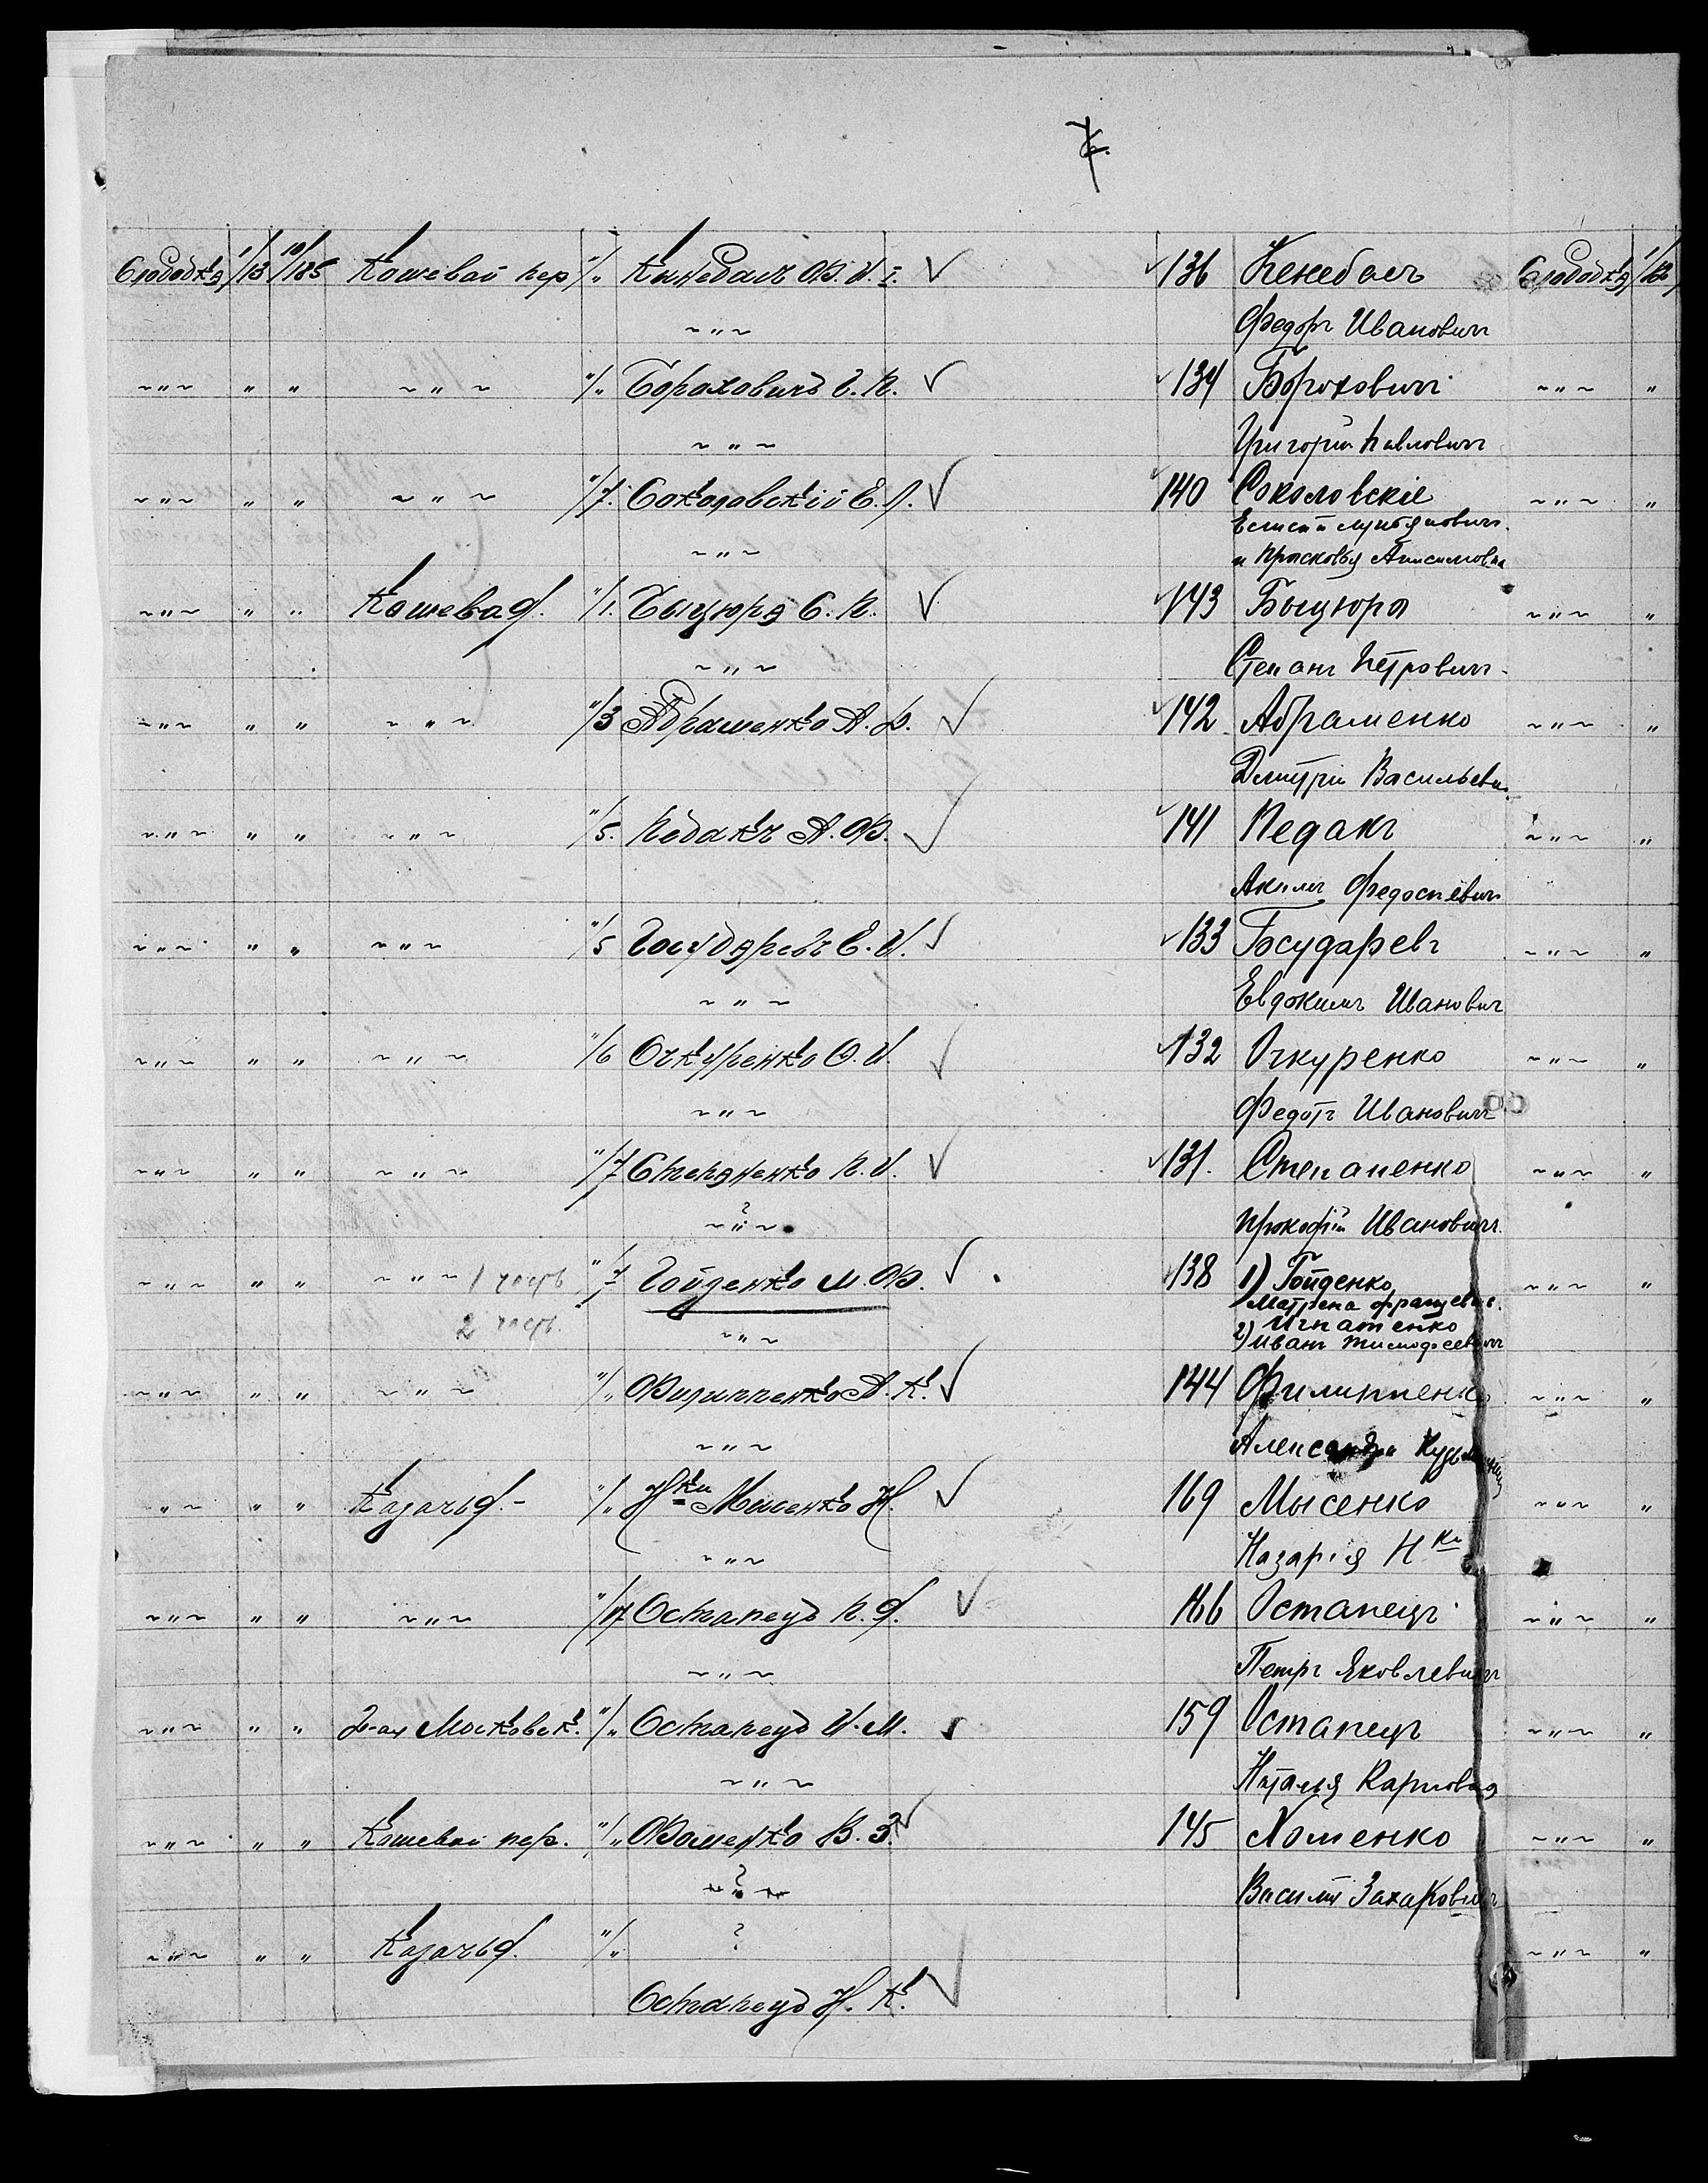 7.
Слободка 1/13 10/185 Кошевой пер "/" Кинебалъ Ф. И. ✓ ✓136 Кенебалъ Слободка 1/13
~"~ Федоръ Ивановичъ
~"~ " " ~"~ "/" Бораховичъ Г. П. ✓ ✓134 Бороховичъ ~"~ "
~"~ Григорій Павловичъ
~"~ " " ~"~ "/7. Соколовскій Е. Л. ✓ ✓140 Соколовскіе ~"~ "
Елисей Лукьяновичъ.
~"~ и Прасковья Анисимовна
~"~ " " Кошевая. "/1. Быцюра С. П. ✓ ✓143 Быцюра ~"~ "
~"~ Степанъ Петровичъ.
~"~ " " ~"~ "/3 Абраменко Д. В. ✓ ✓142. Абраменко ~"~ "
Дмитрій Васильевич
~"~ " " ~"~ "/5. Педакъ А. Ф. ✓ ✓141 Педакъ ~"~ "
Акимъ Федосіевич
~"~ " " ~"~ "/5 Государевъ Е. И. ✓ ✓133 Государевъ ~"~ "
~"~ Евдокимъ Иванович
~"~ " " ~"~ "/6 Очкуренко Ф. И. ✓ ✓132 Очкуренко ~"~ "
~"~ Федотъ Ивановичъ
~"~ " " ~"~ "/7 Степаненко П. И. ✓ ✓131. Степаненко ~"~ "
?
~"~ Прокофій Ивановичъ
~"~ " " ~"~ 1 часть "/7 Гойденко М. Ф. ✓ 138 1) Гойденко ~"~ "
Матрена Францевн.
2 часть. ~"~ 2) Игнатенко
Иванъ Тимофеевичъ
~"~ " " ~"~ "/" Филипченко А. К. ✓ 144 Филипченко ~"~ "
~"~ Александръ
~"~ " " Казачья.- "/" Н-ки Мысенко Н. ✓ 169 Мысенко ~"~ "
~"~ Назарія Н-ки
~"~ " " ~"~ "/17 Остапецъ П. Я. ✓ 166 Остапецъ ~"~ "
~"~ Петръ Яковлевичъ
~"~ " " 2-ая Московск. "/" Остапецъ И. М. ✓ 159 Остапецъ ~"~ "
~"~ Наталья Карповна
~"~ " " Кошевой пер. "/" Фоменко В. З. ✓ 145 Хоменко ~"~ "
?
~"~ Василій Захаровичъ
~"~ " " Казачья. "/" ? ~"~ "
Остапецъ Н. К. ✓